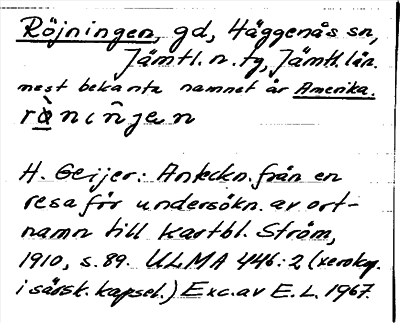 Röjningen, gd, Häggenås sn,
Jämtl. n. tg, Jämtl. län.
mest bekanta namnet är Amerika.
rä̀nıñjen
H. Geijer: Anteckn. från en
resa för undersökn. av ort-
namn till kartbl. Ström,
1910, s. 89. ULMA 446:2 (xerokop.
i särsk. kapsel.) Exc. av E. L. 1967.